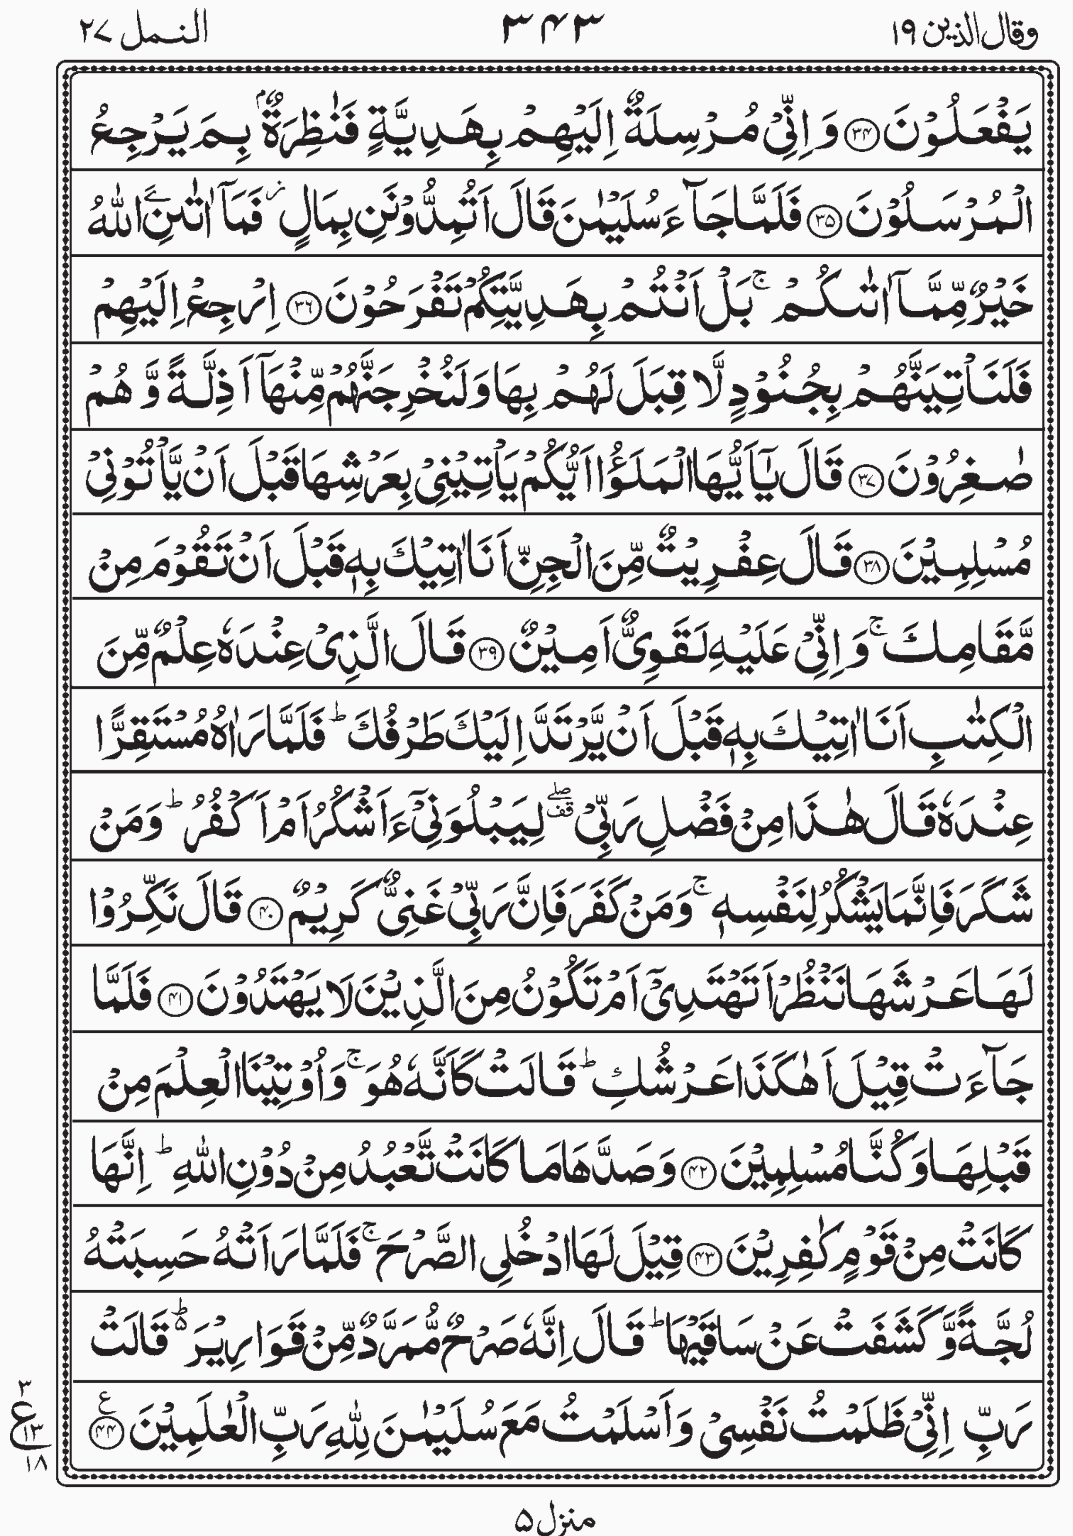 وقال الذین ۱۹ ۳۴۳ النمل ۲۷
یَفْعَلُوْنَ ﴿۳۴﴾ وَ اِنِّیْ مُرْسِلَةٌ اِلَیْهِمْ بِهَدِیَّةٍ فَنٰظِرَةٌۢ بِمَ یَرْجِعُ
الْمُرْسَلُوْنَ ﴿۳۵﴾ فَلَمَّا جَآءَ سُلَیْمٰنَ قَالَ اَتُمِدُّوْنَنِ بِمَالٍ ؗ فَمَاۤ اٰتٰىنِۦَ اللّٰهُ
خَیْرٌ مِّمَّاۤ اٰتٰىكُمْ ۚ بَلْ اَنْتُمْ بِهَدِیَّتِكُمْ تَفْرَحُوْنَ ﴿۳۶﴾ اِرْجِعْ اِلَیْهِمْ
فَلَنَاْتِیَنَّهُمْ بِجُنُوْدٍ لَّا قِبَلَ لَهُمْ بِهَا وَ لَنُخْرِجَنَّهُمْ مِّنْهَاۤ اَذِلَّةً وَّ هُمْ
صٰغِرُوْنَ ﴿۳۷﴾ قَالَ یٰۤاَیُّهَا الْمَلَؤُا اَیُّكُمْ یَاْتِیْنِیْ بِعَرْشِهَا قَبْلَ اَنْ یَّاْتُوْنِیْ
مُسْلِمِیْنَ ﴿۳۸﴾ قَالَ عِفْرِیْتٌ مِّنَ الْجِنِّ اَنَا اٰتِیْكَ بِهٖ قَبْلَ اَنْ تَقُوْمَ مِنْ
مَّقَامِكَ ۚ وَ اِنِّیْ عَلَیْهِ لَقَوِیٌّ اَمِیْنٌ ﴿۳۹﴾ قَالَ الَّذِیْ عِنْدَهٗ عِلْمٌ مِّنَ
الْكِتٰبِ اَنَا اٰتِیْكَ بِهٖ قَبْلَ اَنْ یَّرْتَدَّ اِلَیْكَ طَرْفُكَ ؕ فَلَمَّا رَاٰهُ مُسْتَقِرًّا
عِنْدَهٗ قَالَ هٰذَا مِنْ فَضْلِ رَبِّیْ ۖ۫ لِیَبْلُوَنِیْۤ ءَاَشْكُرُ اَمْ اَكْفُرُ ؕ وَ مَنْ
شَكَرَ فَاِنَّمَا یَشْكُرُ لِنَفْسِهٖ ۚ وَ مَنْ كَفَرَ فَاِنَّ رَبِّیْ غَنِیٌّ كَرِیْمٌ ﴿۴۰﴾ قَالَ نَكِّرُوْا
لَهَا عَرْشَهَا نَنْظُرْ اَتَهْتَدِیْۤ اَمْ تَكُوْنُ مِنَ الَّذِیْنَ لَا یَهْتَدُوْنَ ﴿۴۱﴾ فَلَمَّا
جَآءَتْ قِیْلَ اَهٰكَذَا عَرْشُكِ ؕ قَالَتْ كَاَنَّهٗ هُوَ ۚ وَ اُوْتِیْنَا الْعِلْمَ مِنْ
قَبْلِهَا وَ كُنَّا مُسْلِمِیْنَ ﴿۴۲﴾ وَ صَدَّهَا مَا كَانَتْ تَّعْبُدُ مِنْ دُوْنِ اللّٰهِ ؕ اِنَّهَا
كَانَتْ مِنْ قَوْمٍ كٰفِرِیْنَ ﴿۴۳﴾ قِیْلَ لَهَا ادْخُلِی الصَّرْحَ ۚ فَلَمَّا رَاَتْهُ حَسِبَتْهُ
لُجَّةً وَّ كَشَفَتْ عَنْ سَاقَیْهَا ؕ قَالَ اِنَّهٗ صَرْحٌ مُّمَرَّدٌ مِّنْ قَوَارِیْرَ ؕ۬ قَالَتْ
رَبِّ اِنِّیْ ظَلَمْتُ نَفْسِیْ وَ اَسْلَمْتُ مَعَ سُلَیْمٰنَ لِلّٰهِ رَبِّ الْعٰلَمِیْنَ ﴿۴۴﴾ ع
۳
ع ۱۳
۱۸
منزل ۵